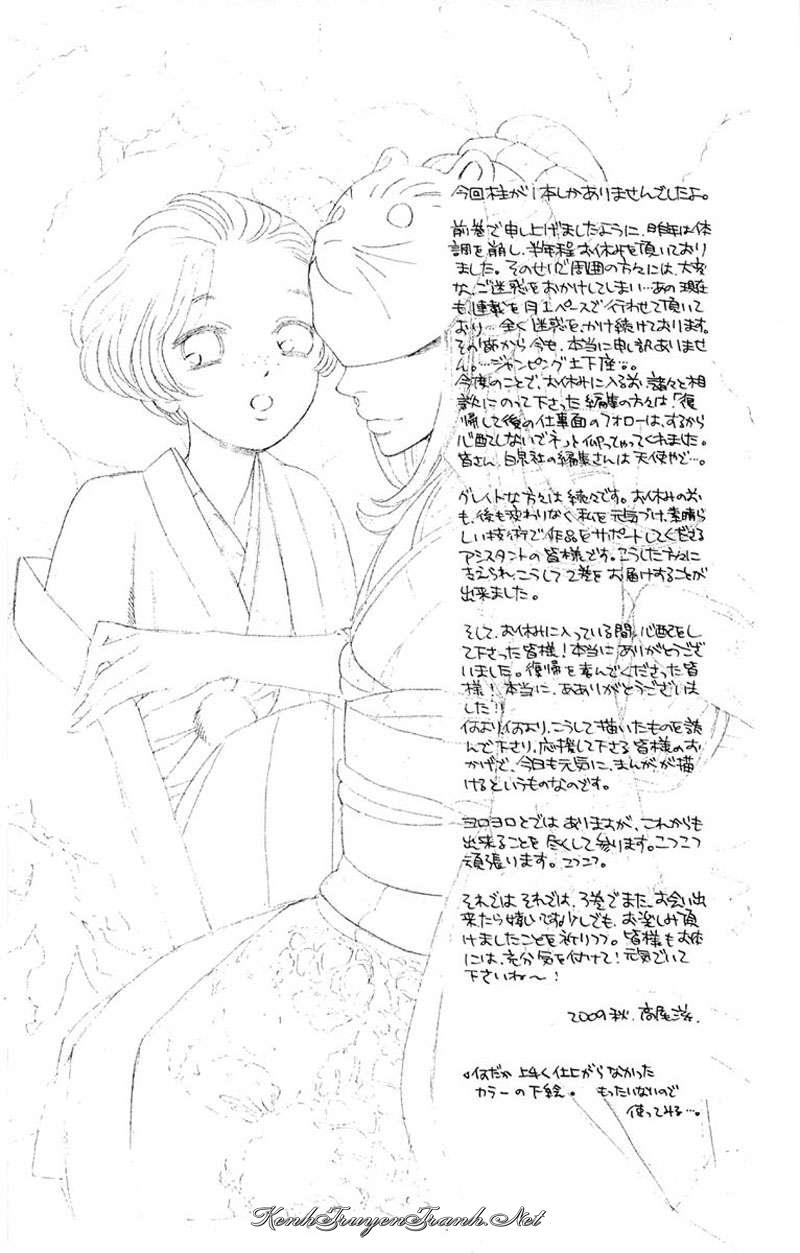 今回柱が1本しかありませんでしたよ。
前巻で申し上げましたように、昨年は体
調を崩し、半年程お休みを頂いており
ました。そのせいで周囲の方々には、大変
な、ご迷惑をおかけしてしまい…あの現在
も、連載を月1ペースで行わせて頂いて
おり…全く迷惑を、かけ続けております。
その節から今も、本当に申し訳ありませ
ん。…ジャンピング土下座…。
今度のことで、お休みに入る前、諸々と相
談にのって下さった編集の方々は「復
帰して後の仕事面のフォローは、するから
心配しないでネ」と仰ってやってくれました。
皆さん、白泉社の編集さんは天使やど…。
グレイトな方々は続々です。お休みの前
も、後も変わりなく私を元気づけ、素晴ら
しい技術で作品をサポートしてくださる
アシスタントの皆様です。こうした方々に
支えられ、こうして2巻をお届けすることが
出来ました。
そして、お休みに入っている間、心配をし
て下さった皆様!本当にありがとうござ
いました。復帰を喜んでくださった皆
様!本当に、ああありがとうございま
した!!
何より何より、こうして描いたものを読
んで下さり、応援して下さる皆様のお
かげで、今日も元気に、まんがが描
けるというものなのです。
ヨロヨロとでは ありますが、これからも
出来ることを尽くして参ります。こつこつ
頑張ります。こつこつ。
それでは それでは、3巻でまた、お会い出
来たら嬉しいです。少しでも、お楽しみ頂
けましたことを祈りつつ。皆様もお体
には、充分気を付けて!元気でいて
下さいね〜!
2009秋.高尾滋.
何だか 上手く仕上がらなかった
カラーの下絵。もったいないので
使ってみる…。
KenhTruyenTranh.Net